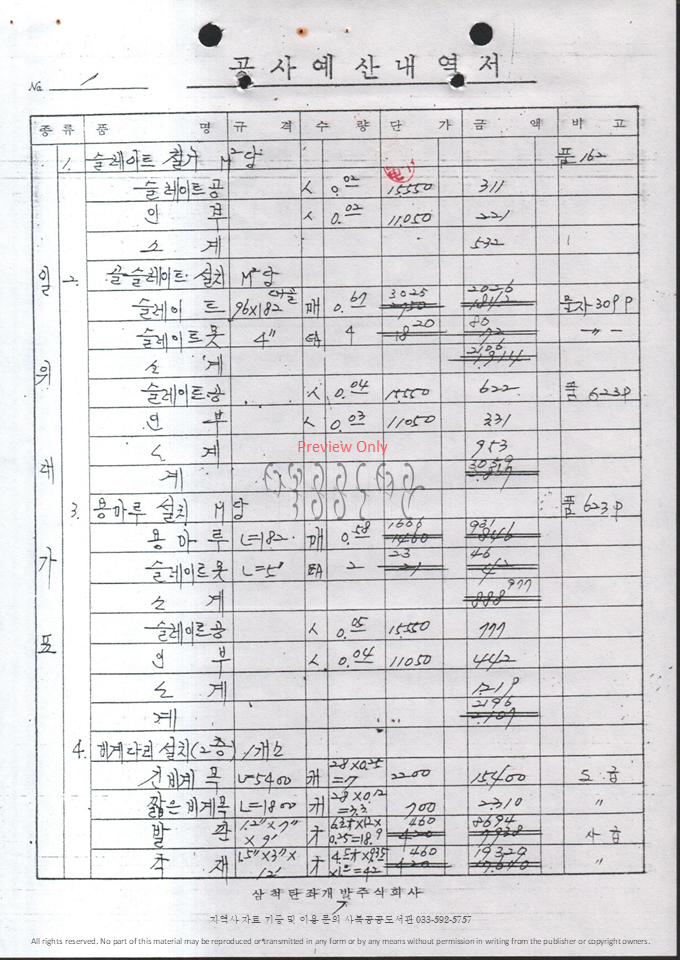 공사예산내역서
No 1
종류 품명 규격 수량 단가 금액 비고
일위대가표
1. 슬레이트 철거 M²당 품 162
슬레이트공 人 0.02 15,550 311
인부 人 0.02 11,050 221
소계 532
2. 골슬레이트 설치 M²당
슬레이트 96×182 매 0.67 3025 2026 물자 309P
슬레이트못 4" EA 4 20 80 〃
소계 2106
슬레이트공 人 0.04 15,550 622 품 623P
인부 人 0.03 11050 331
소계 953
Preview Only
계 3059
3. 용마루 설치 M당 품 623P
용마루 L=182 매 0.58 1606 931
슬레이트못 L=5" EA 2 23 46
소계 888 977
슬레이트공 人 0.05 15,550 777
인부 人 0.04 11050 442
소계 1,219
계 2196
4. 비계다리 설치(2층) 1개소
긴비계목 L=5400 개 28×0.25=7 2200 15,400 도급
짧은비계목 L=1800 개 28×0.12=3.3 700 2,310 〃
발판 1.2"×7"×9' 才 0.25=18.9 460 420 8694 7938 사급
각재 1.5"×3"×12' 才 460 420 19320 〃
삼척탄좌개발주식회사
지역사 자료 기증 및 이용 문의 사북공공도서관 033-592-5757
All rights reserved. No part of this material may be reproduced or transmitted in any form or by any means without permission in writing from the publisher or copyright owners.